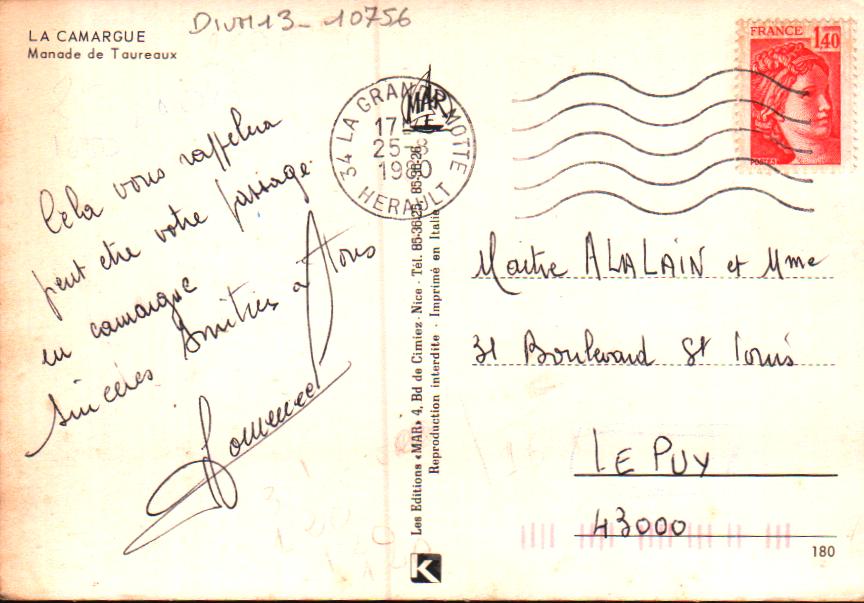 DIVH13-10756
LA CAMARGUE
Manade de Taureaux
Cela vous rappellera
peut etre votre passage
en camargue
Sincères Amitiés à Tous
FRANCE
1,40
POSTES
34 LA GRANDE MOTTE
17H
25-8
1980
HERAULT
MAR
Les Editions «MAR» 4, Bd de Cimiez - Nice - Tél. 85-36-25 85-36-26
Reproduction interdite - Imprimé en Italie
Maitre ALALAIN et Mme
31 Boulevard St Louis
LE PUY
43000
180
K